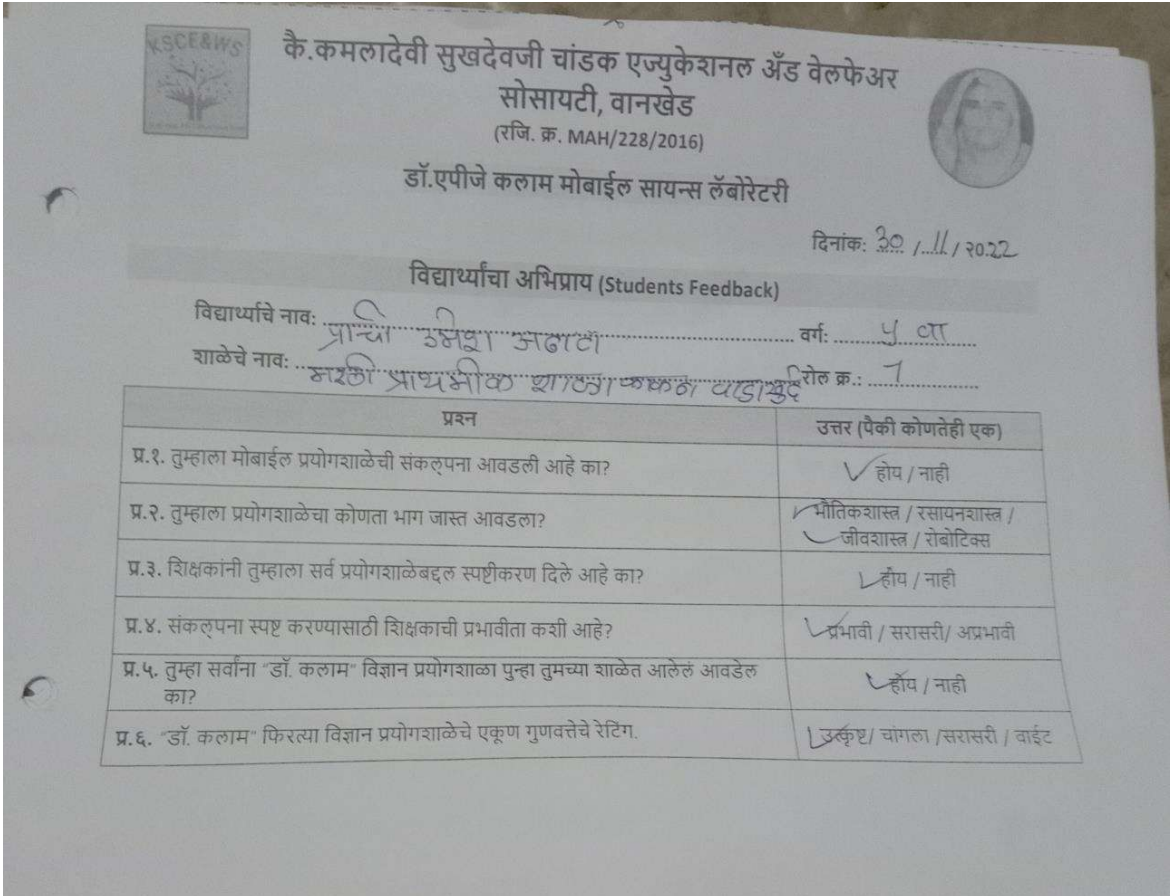 KSCE&WS
कै.कमलादेवी सुखदेवजी चांडक एज्युकेशनल अँड वेलफेअर
सोसायटी, वानखेड
(रजि. क्र. MAH/228/2016)
डॉ.एपीजे कलाम मोबाईल सायन्स लॅबोरेटरी
दिनांक: 30 / 11 / २०22
विद्यार्थ्यांचा अभिप्राय (Students Feedback)
विद्यार्थ्याचे नाव: प्राची उमेश वर्ग: ५ वा
शाळेचे नाव: मराठी प्राथमीक शाळा रोल क्र.: 7
प्रश्न उत्तर (पैकी कोणतेही एक)
प्र.१. तुम्हाला मोबाईल प्रयोगशाळेची संकल्पना आवडली आहे का? होय / नाही
प्र.२. तुम्हाला प्रयोगशाळेचा कोणता भाग जास्त आवडला? भौतिकशास्त्र / रसायनशास्त्र /
जीवशास्त्र / रोबोटिक्स
प्र.३. शिक्षकांनी तुम्हाला सर्व प्रयोगशाळेबद्दल स्पष्टीकरण दिले आहे का? होय / नाही
प्र.४. संकल्पना स्पष्ट करण्यासाठी शिक्षकाची प्रभावीता कशी आहे? प्रभावी / सरासरी/ अप्रभावी
प्र.५. तुम्हा सर्वांना "डॉ. कलाम" विज्ञान प्रयोगशाळा पुन्हा तुमच्या शाळेत आलेलं आवडेल
का? होय / नाही
प्र.६. "डॉ. कलाम" फिरत्या विज्ञान प्रयोगशाळेचे एकूण गुणवत्तेचे रेटिंग. उत्कृष्ट/ चांगला /सरासरी / वाईट